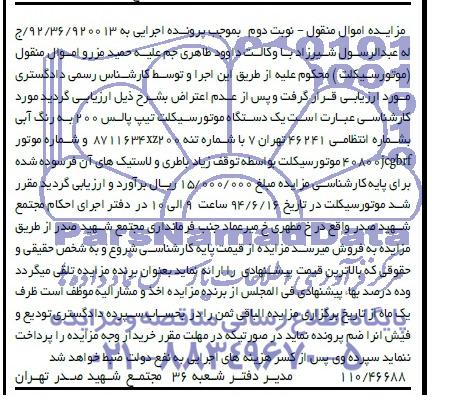 مزایده اموال منقول - نوبت دوم بموجب پرونده اجرایی به ۹۲/۳۶/۹۲۰۰۱۳/ج
له عبدالرسول شیرزاد با وکالت داوود طاهری جم علیه حمید مزرو اموال منقول
(موتورسیکلت) محکوم علیه از طریق این اجرا و توسط کارشناس رسمی دادگستری
مورد ارزیابی قرار گرفت و پس از عدم اعتراض بشرح ذیل ارزیابی گردید مورد
کارشناسی عبارت است یک دستگاه موتورسیکلت تیپ پالس ۲۰۰ به رنگ آبی
بشماره انتظامی ۴۶۲۴۱ تهران ۷ با شماره تنه ۸۷۱۱۶۳۴xz۲۰۰ و شماره موتور
۴۰۸۰۰jcgbrf موتورسیکلت بواسطه توقف زیاد باطری و لاستیک های آن فرسوده شده
برای پایه کارشناسی مزایده مبلغ ۱۵/۰۰۰/۰۰۰ ریال برآورد و ارزیابی گردید مقرر
شد موتورسیکلت در تاریخ ۹۴/۶/۱۶ ساعت ۹ الی ۱۰ در دفتر اجرای احکام مجتمع
شهید صدر واقع در خ مطهری خ میرعماد جنب فرمانداری مجتمع شهید صدر از طریق
مزایده به فروش میرسد مزایده از قیمت پایه کارشناسی شروع و به شخص حقیقی و
حقوقی که بالاترین قیمت پیشنهادی را ارائه نماید بعنوان برنده مزایده تلقی میگردد
وده درصد بها، پیشنهادی فی المجلس از برنده مزایده اخذ و مشار الیه موظف است ظرف
یک ماه از تاریخ برگزاری مزایده الباقی ثمن را در بحساب سپرده دادگستری تودیع و
فیش انرا ضم پرونده نماید در صورتیکه در مهلت مقرر خریدار وجه مزایده را پرداخت
ننماید سپرده وی پس از کسر هزینه های اجرایی به نفع دولت ضبط خواهد شد
۱۱۰/۴۶۶۸۸ مدیر دفتر شعبه ۳۶ مجتمع شهید صدر تهران
ParsNamadData
پایگاه اطلاع رسانی مناقصه و مزایده
۰۲۱-۸۸۳۴۹۶۷۰-۵